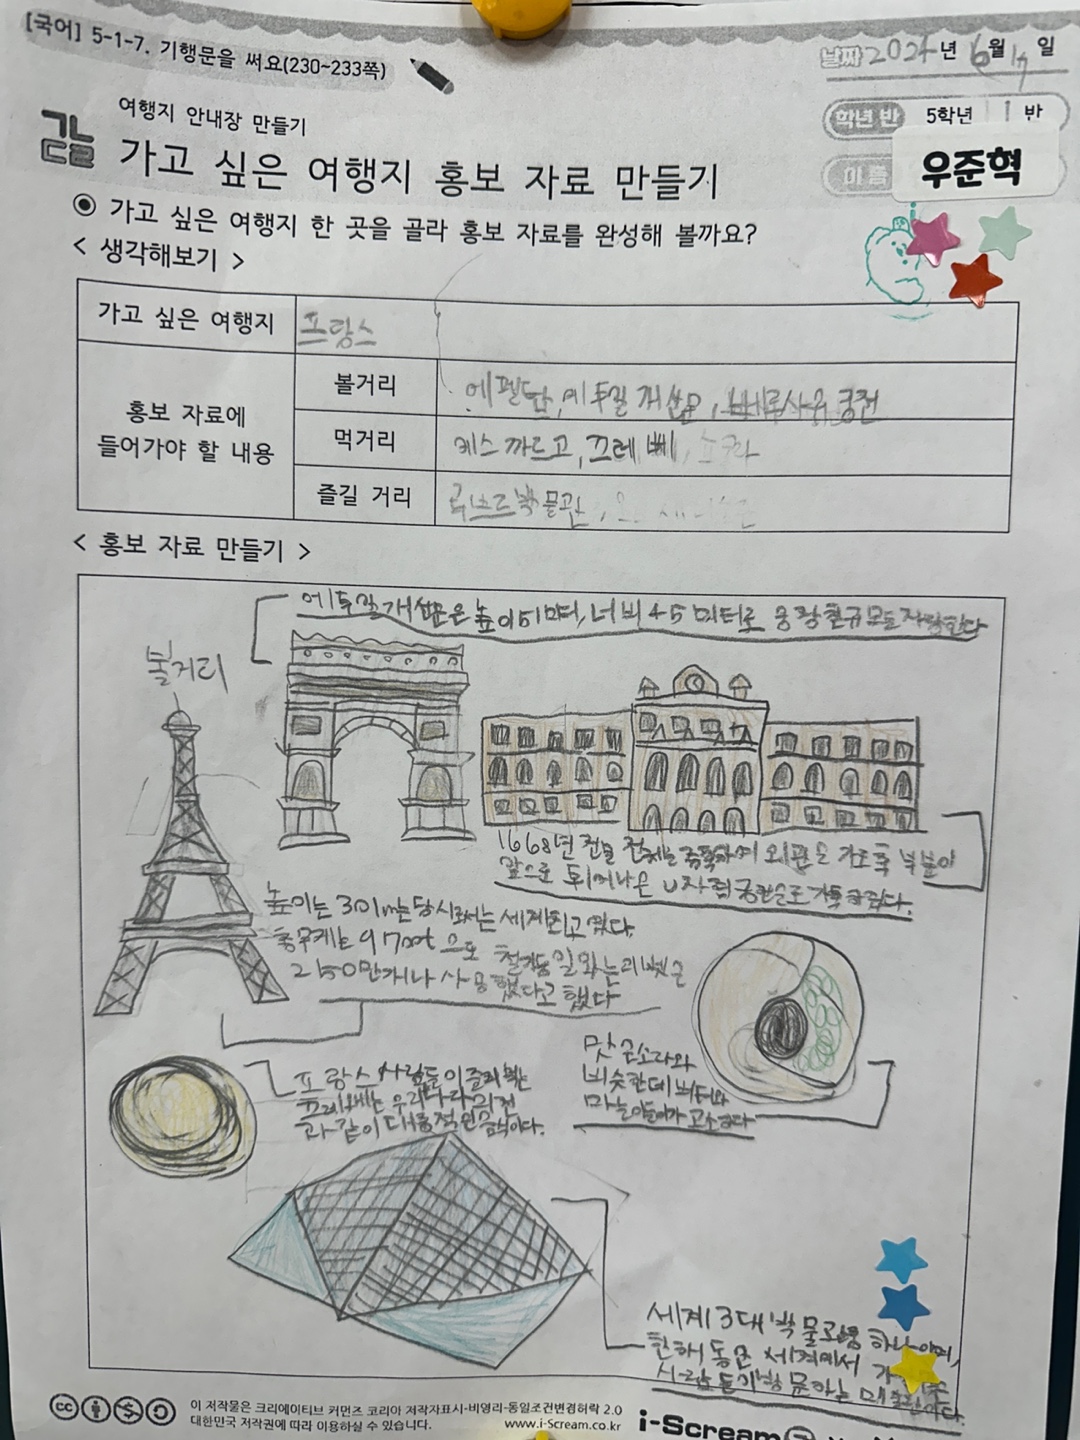 [국어] 5-1-7. 기행문을 써요(230~233쪽)
날짜 2024년 6월 14일
여행지 안내장 만들기
학년 반 5학년 1 반
가고 싶은 여행지 홍보 자료 만들기
우준혁
가고 싶은 여행지 한 곳을 골라 홍보 자료를 완성해 볼까요?
< 생각해보기 >
가고 싶은 여행지 프랑스
홍보 자료에 들어가야 할 내용
볼거리 에펠탑, 에투알 개선문, 베르사유 궁전
먹거리 에스까르고, 끄레뻬,
즐길 거리 루브르 박물관,
< 홍보 자료 만들기 >
에투알개선문은 높이 51미터, 너비 45미터로 웅장한규모를자랑한다
볼거리
1668년 전물 전체는 증폭하여 외관은 가조축 부분이
앞으로 튀어나온 U자형 궁전으로 가득하였다.
높이는 301m는 당시로서는 세계최고 였다.
총무게는 9700t 으로 철기둥 일와는 리벳은
2150만개나 사용했다고 했다
맛은소라와
비슷한데 버터와
마늘이들어가 고소하다
프랑스 사람들이 즐겨 먹는
끄레페는 우리나라의 전
과 같이 대중적인 음식이다.
세계 3대 박물관중 하나이며,
한해 동안 세계에서
사람들이 방문하는 매출한다.
이 저작물은 크리에이티브 커먼즈 코리아 저작자표시-비영리-동일조건변경허락 2.0
대한민국 저작권에 따라 이용하실 수 있습니다.
www.i-Scream.co.kr
i-Scream